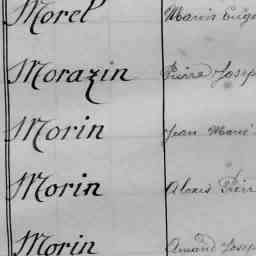 Morel Marie Eugè
Morazin Pierre Josep
Morin Jean Marie
Morin Alexis Pierr
Morin Amand Josep